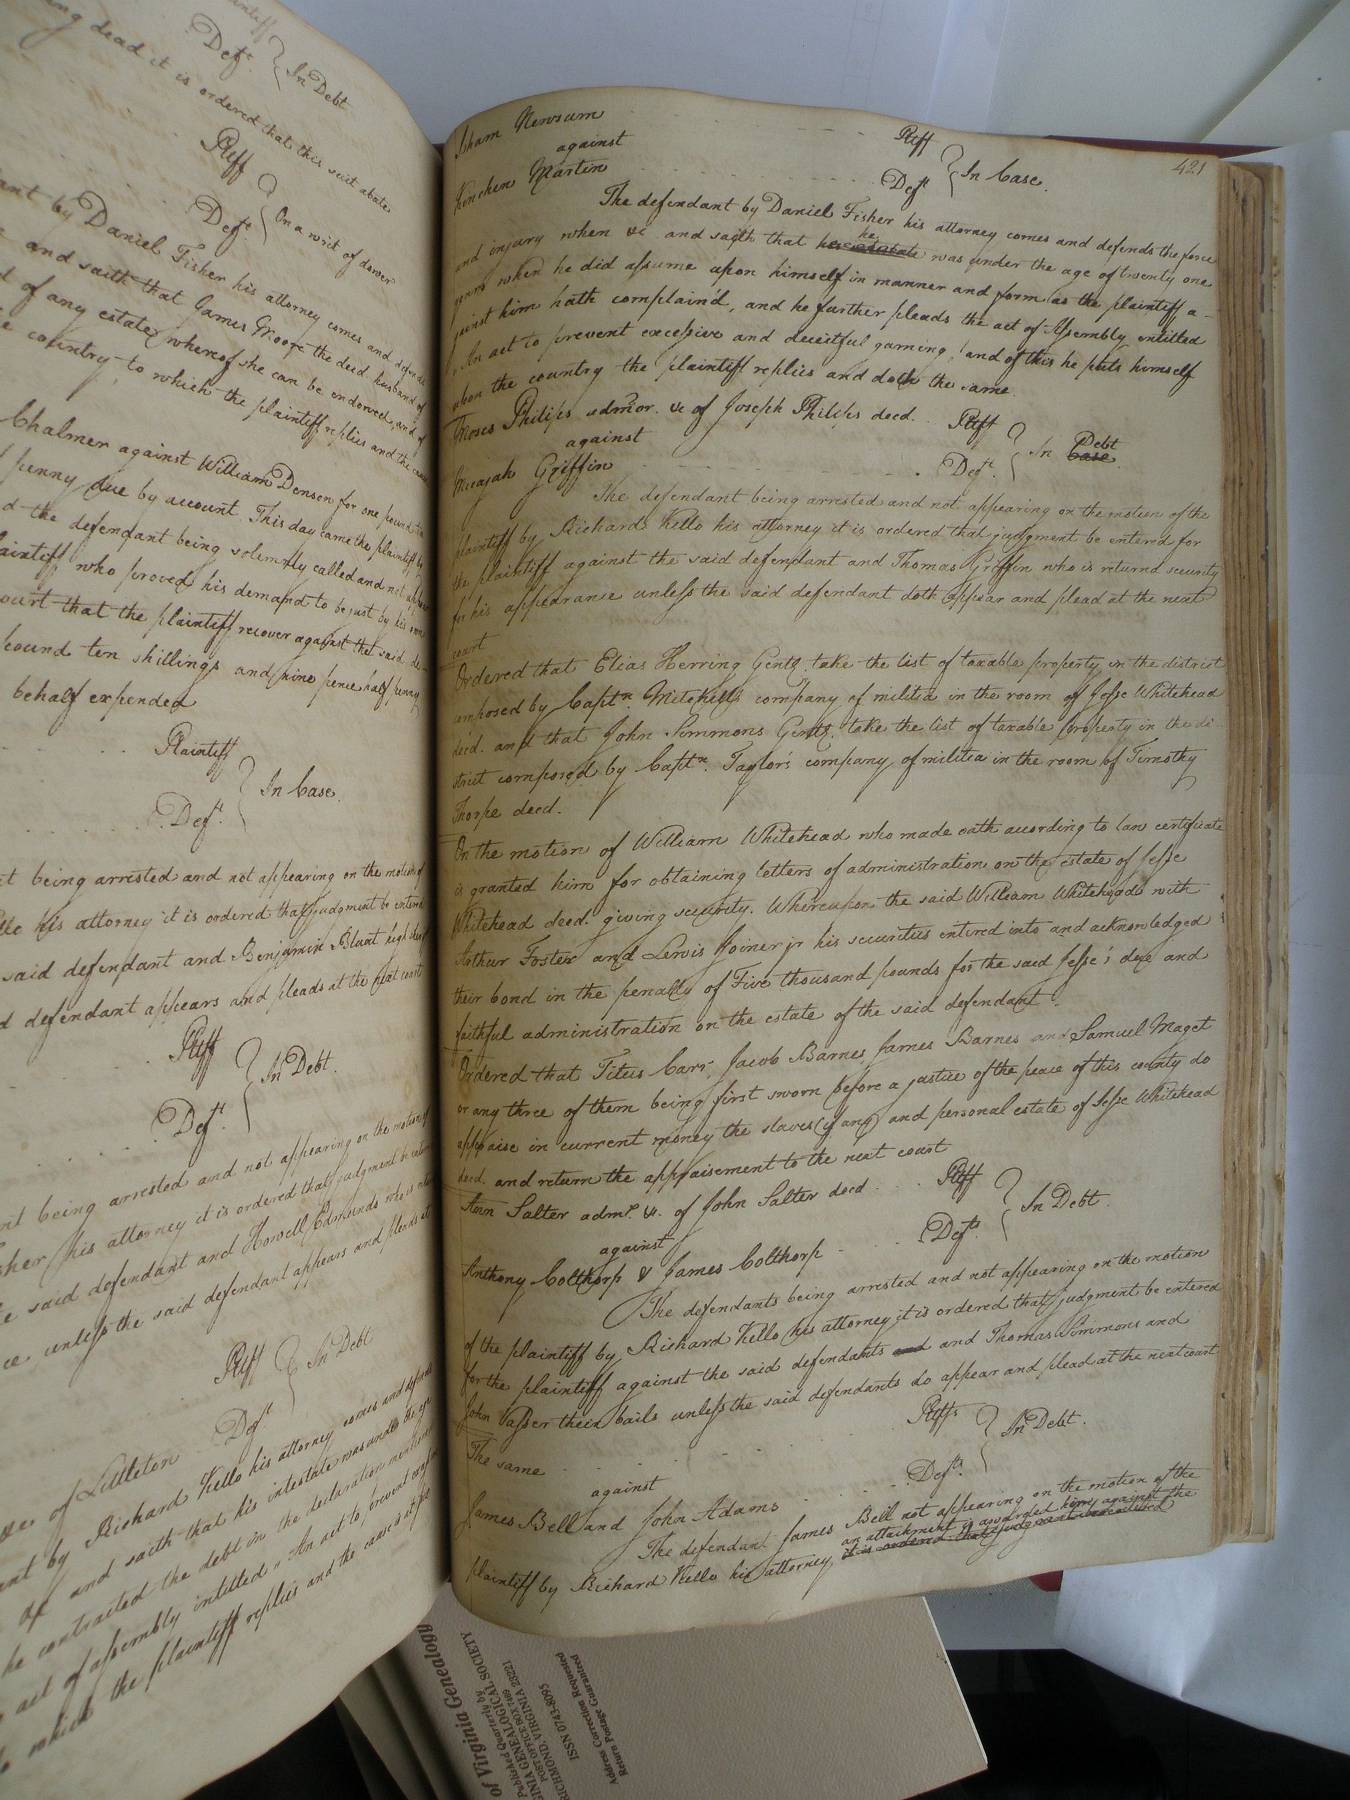 Deft. } In Debt
ng dead it is ordered that this suit abate
Pltff
Deft. } On a writ of dower
ant by Daniel Fisher his attorney comes and defends
and saith that James Moore the decd. husband of
d of any estate whereof she can be endowed, and of
e country, to which the plaintiff replies and the cause
Chalmer against William Denson for one pound
penny due by account. This day came the plaintiff by
d the defendant being solemnly called and not
aintiff who proved his demand to be just by his own
ourt that the plaintiff recover against the said de-
pound ten shillings and nine pence half penny
behalf expended
Plaintiff
Deft. } In Case.
t being arrested and not appearing on the motion of
llo his attorney it is ordered that judgment be entered
said defendant and Benjamin Blunt high
d defendant appears and pleads at the next court
Pltff
Deft. } In Debt.
nt being arrested and not appearing on the motion of
sher his attorney it is ordered that judgment be
e said defendant and Howell Edmunds who is
ce unless the said defendant appears and pleads at
Pltff
Deft } In Debt
of Littleton
nt by Richard Kello his attorney comes and defends
&c and saith that his intestate was under the age
he contracted the debt in the declaration mentioned
act of assembly intitled "An act to prevent
to which the plaintiff replies and the cause is
421
Isham Newsum Pltff
against } In Case.
Kinchen Martin Deft.
The defendant by Daniel Fisher his attorney comes and defends the force
and injury when &c and saith that he was under the age of twenty one
years when he did assume upon himself in manner and form as the plaintiff a-
gainst him hath complain'd, and he further pleads the act of Assembly entitled
"An act to prevent excessive and deceitful gaming," and of this he puts himself
upon the country the plaintiff replies and doth the same.
Moses Philips admor. &c of Joseph Philips decd. Pltff
against } In Case Debt
Micajah Griffin Deft.
The defendant being arrested and not appearing on the motion of the
plaintiff by Richard Kello his attorney it is ordered that judgment be entered for
the plaintiff against the said defendant and Thomas Griffin who is returnd security
for his appearance unless the said defendant doth appear and plead at the next
court
Ordered that Elias Herring Gentn. take the list of taxable property in the district
composed by Captn. Mitchell's company of militia in the room of Jesse Whitehead
decd. and that John Simmons Gentn. take the list of taxable property in the di-
strict composed by Captn. Taylor's company of militia in the room of Timothy
Thorpe decd.
On the motion of William Whitehead who made oath according to law certificate
is granted him for obtaining letters of administration on the estate of Jesse
Whitehead decd. giving security. Whereupon the said William Whitehead with
Arthur Foster and Lewis Joiner jr his securities entered into and acknowledged
their bond in the penalty of Five thousand pounds for the said Jesse's due and
faithful administration on the estate of the said defendant.
Ordered that Titus Carr, Jacob Barnes, James Barnes and Samuel Maget
or any three of them being first sworn before a justice of the peace of this county do
appraise in current money the slaves (if any) and personal estate of Jesse Whitehead
decd. and return the appraisement to the next court
Ann Salter admr. &c. of John Salter decd Pltff
against } In Debt.
Anthony Colthorp & James Colthorp Defts.
The defendants being arrested and not appearing on the motion
of the plaintiff by Richard Kello his attorney it is ordered that judgment be entered
for the plaintiff against the said defendants and and Thomas Simmons and
John Vasser their bails unless the said defendants do appear and plead at the next court
The same Pltffs
against } In Debt.
James Bell and John Adams Defts.
The defendant James Bell not appearing on the motion of the
an attachment is awarded him against the
plaintiff by Richard Kello his attorney it is ordered that judgment be entered
of Virginia Genealogy
Published Quarterly by
VIRGINIA GENEALOGICAL SOCIETY
POST OFFICE BOX 7469
RICHMOND, VIRGINIA 23221
ISSN 0743-8095
Address Correction Requested
Return Postage Guaranteed